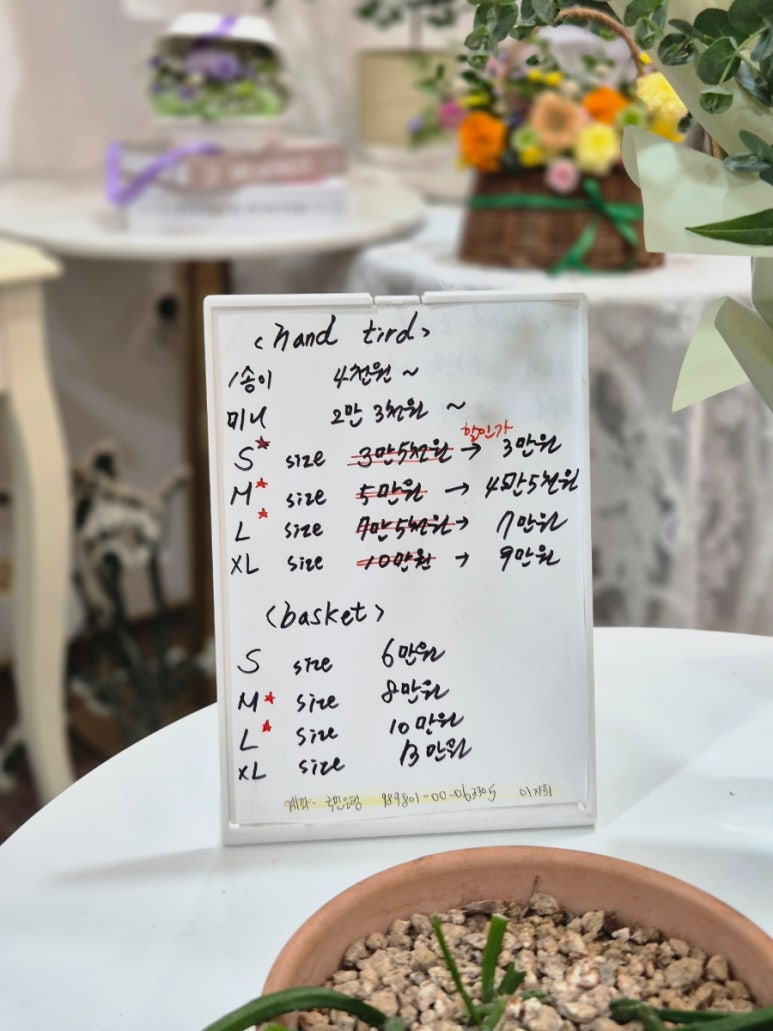 <hand tird>
1송이 4천원 ~
미니 2만 3천원 ~
할인가
S★ size 3만5천원 → 3만원
M★ size 5만원 → 4만5천원
L★ size 7만5천원 → 7만원
XL size 10만원 → 9만원
<basket>
S size 6만원
M★ size 8만원
L★ size 10만원
XL size 13만원
계좌: 국민은행 989801-00-063305 이지희